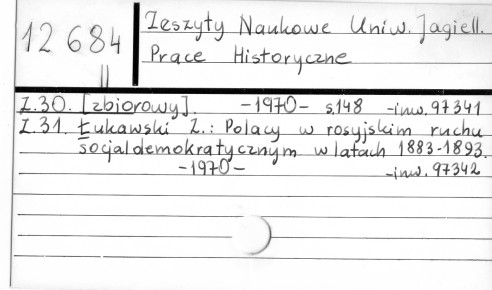 12 684
II
Zeszyty Naukowe Uniw. Jagiell.
Prace Historyczne
Z.30. [zbiorowy]. -1970- s.148 -inw. 97341
Z.31. Łukawski Z.: Polacy w rosyjskim ruchu
socjaldemokratycznym w latach 1883-1893.
-1970- -inw. 97342